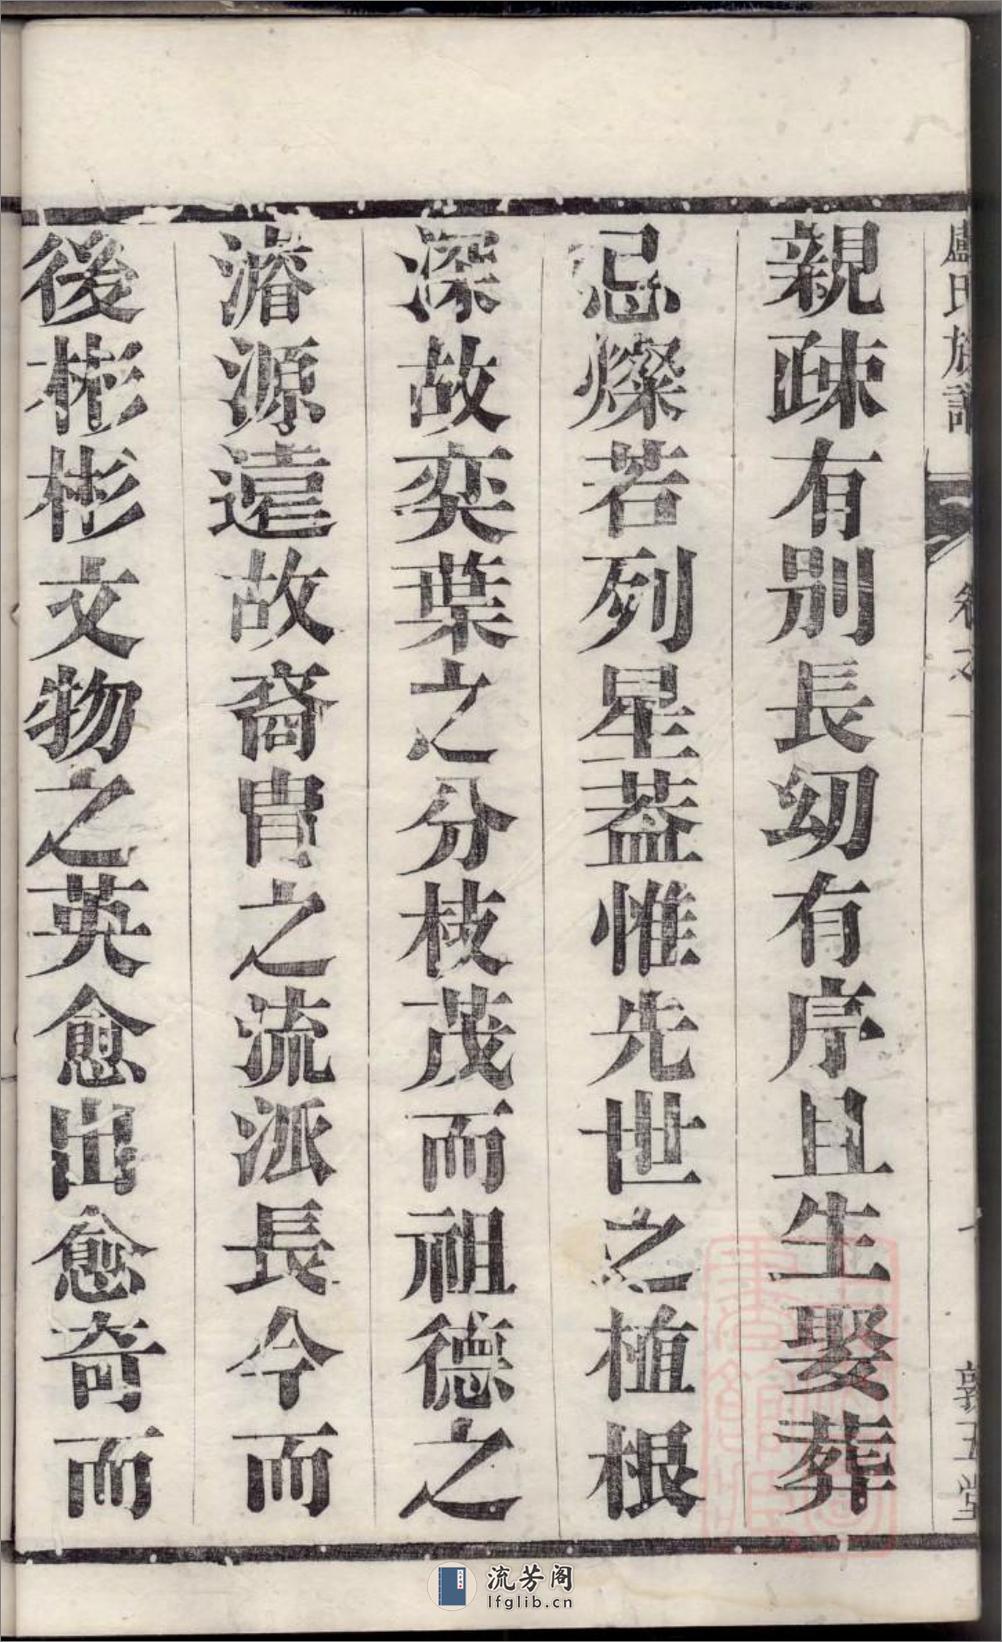 盧氏族譜
卷之一
敦五堂
親疎有別長幼有序且生娶葬
忌燦若列星葢惟先世之植根
深故奕葉之分枝茂而祖德之
濬源遠故裔胄之流派長今而
後彬彬文物之英愈出愈奇而
流芳阁
lfglib.cn